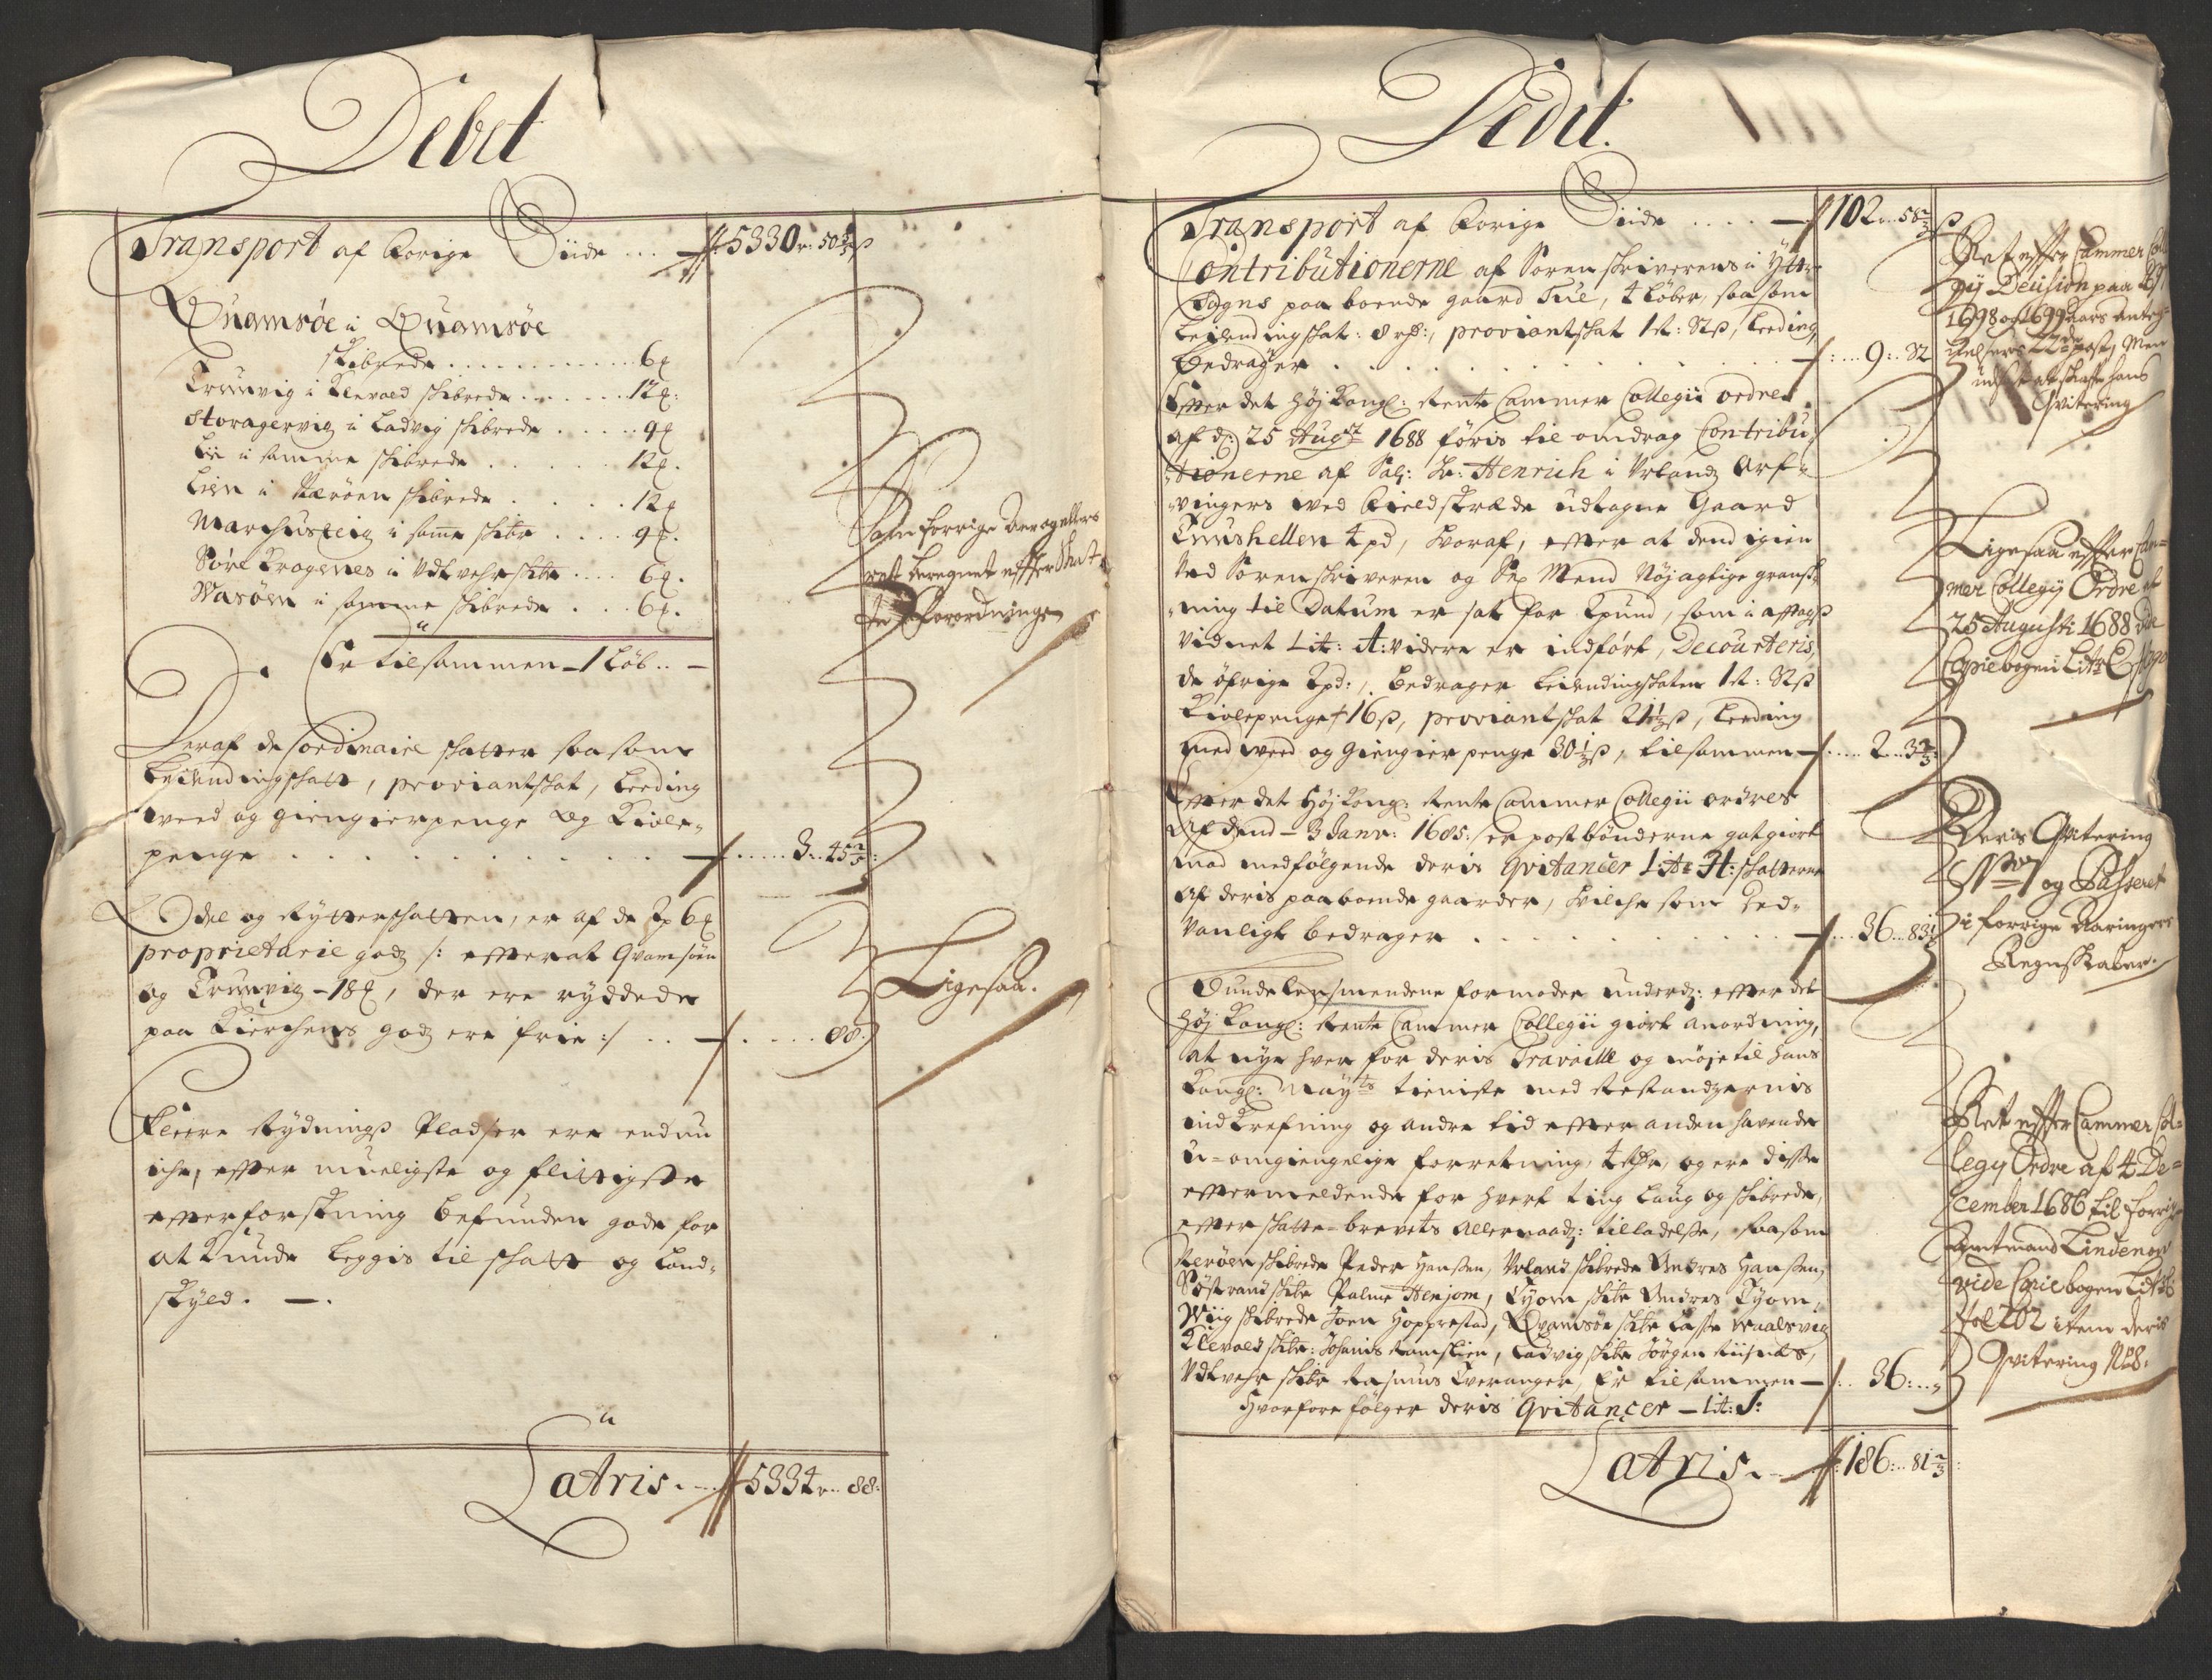 Debet
Transport af forige Siide ... 5330 r. 50 ß
Quamsöe i Quamsöe
skibrede ............ 6
Trunvig i Klevold skibrede ...... 12
Storagervig i Ladvig skibrede ..... 9
Lii i samme skibrede ...... 12
Lien i Næröen skibrede ..... 12
Marchusteig i samme skibr .... 9
Söre Kragenes i Udvehr skibr .... 6
Wasöen i samme skibrede ... 6
Er tilsammen - 1 Löb ..
Heraf de ordinaire skatter saasom
Leilendingskatt, proviantskat, Leeding
weed og giengierpenge og Kiöle-
penge ........ 3 .. 45
Odel og Rytterskatten, er af de 6
proprietarie godz /: efter at Qvamsöen
og Trunvig - 18, der ere ryddede
paa Kierchens godz ere frie :/ .. 88
Fleere Rydnings Pladser ere endnu
iche, efter mueligste og flittigste
efterforskning befunden gode for
at kunde leggis til skatt og Land-
skyld. —
Latris. 5334 r. 88
Som forrige Aar og ellers
ret beregnet efter Skat-
te Forordningen
Ligesaa.
Dedit.
Transport af forige Siide .... 102 .. 58
Contributionerne af Sorenskriverens i Yttre
Sogns paaboende gaard Tue, 4 Löber, saasom
Leilendingskat: 8 rd:, proviantskat 1 rt: 82 ß, Leeding
bedrager ........ 9 : 82
Efter det Höj Kongl: Rente Cammer Collegii ordre
af d: 25 Augst 1688 föris til omdrag Contribu-
tionerne af Sal: Hr: Henrich i Urlandz Arf-
vingers ved fieldskrede udtagne Gaard
Tuushellen 4 pd, hvoraf, efter at dend igien
ved Sorenskriveren og Sex Mend Nöjagtige gransk-
ning til Datum er sat for 2 pund, som i aftagß
vidnet Lit: A: videre er indfört, Decourteris
de öfrige 2 pd:, bedrager Leilendingskaten 1 rt: 82 ß
Kiölepenge 16 ß, proviantskat 21 ½ ß, Leeding
med weed og giengier penge 30 ½ ß, tilsammen .... 2 .. 3
Efter det Höj Kongl: Rente Cammer Collegii ordres
Af dend - 3 Janv: 1685: er postbönderne gotgiort
mod medfölgende deris Qvitancer Lit: H: skatterne
af deris paaboende gaarder, hvilche som sed-
vanligt bedrager ........ 36 .. 83
Bundelensmendene formoder underd: efter det
Höj Kongl: Rente Cammer Collegii giort anordning,
at nyde hver for deris Travaille og möje til hans
Kongl: Mayts tieniste med Restandzernis
indkrefning og andre tid efter anden havende
u-omgiengelige forretning, 4 rdr, og ere disse
eftermeldende for hvert ting laug og skibrede,
efter skatte-brevets Allernaad: tilladelße, saasom
Neröen skibrede Peder Hanßen, Urland skibrede Andres Hanßen,
Söstrand skibr Palme Henjom, Tyom skibr Andres Tyom,
Wiig skibrede Joen Hopprestad, Qvamsöe skibr Lasse Waalsvig
Klevold skibr: Johanis Ramslien, Ladvig skibr Jörgen Riisnes,
Udvehr skibr Rasmus Tveranger, Er tilsammen .. 36 : ..
Hvorfore fölger deris Qvitancer - Lit: I:
Latris. 186: .. 81 ⅔
Ret efter Cammer Col-
legij Decision paa A°
1698 og 1699 Aars Anteg-
nelsers 22de post, Men
udj at skaffe hans
Qvitering
Ligesaa efter Cam-
mer Collegij Ordre af
25 Augusti 1688 vide
Copiebogen Litr C
Deris Qvitering
No 7 og Passeret
i forrige Aaringers
Regnskaber.
Ret efter Cammer Col-
legij Ordre af 4 De-
cember 1686 til forrige
Amtmand Lindenow
vide Copiebogen Litr
fol 202 item deris
Qvitering No 8: